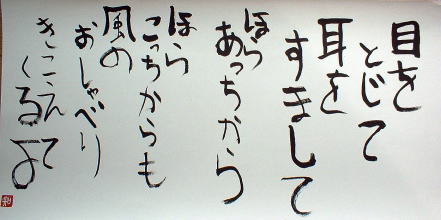 目を
とじて
耳を
すまして
ほら
あっちから
ほら
こっちからも
風の
おしゃべり
きこえて
くるよ